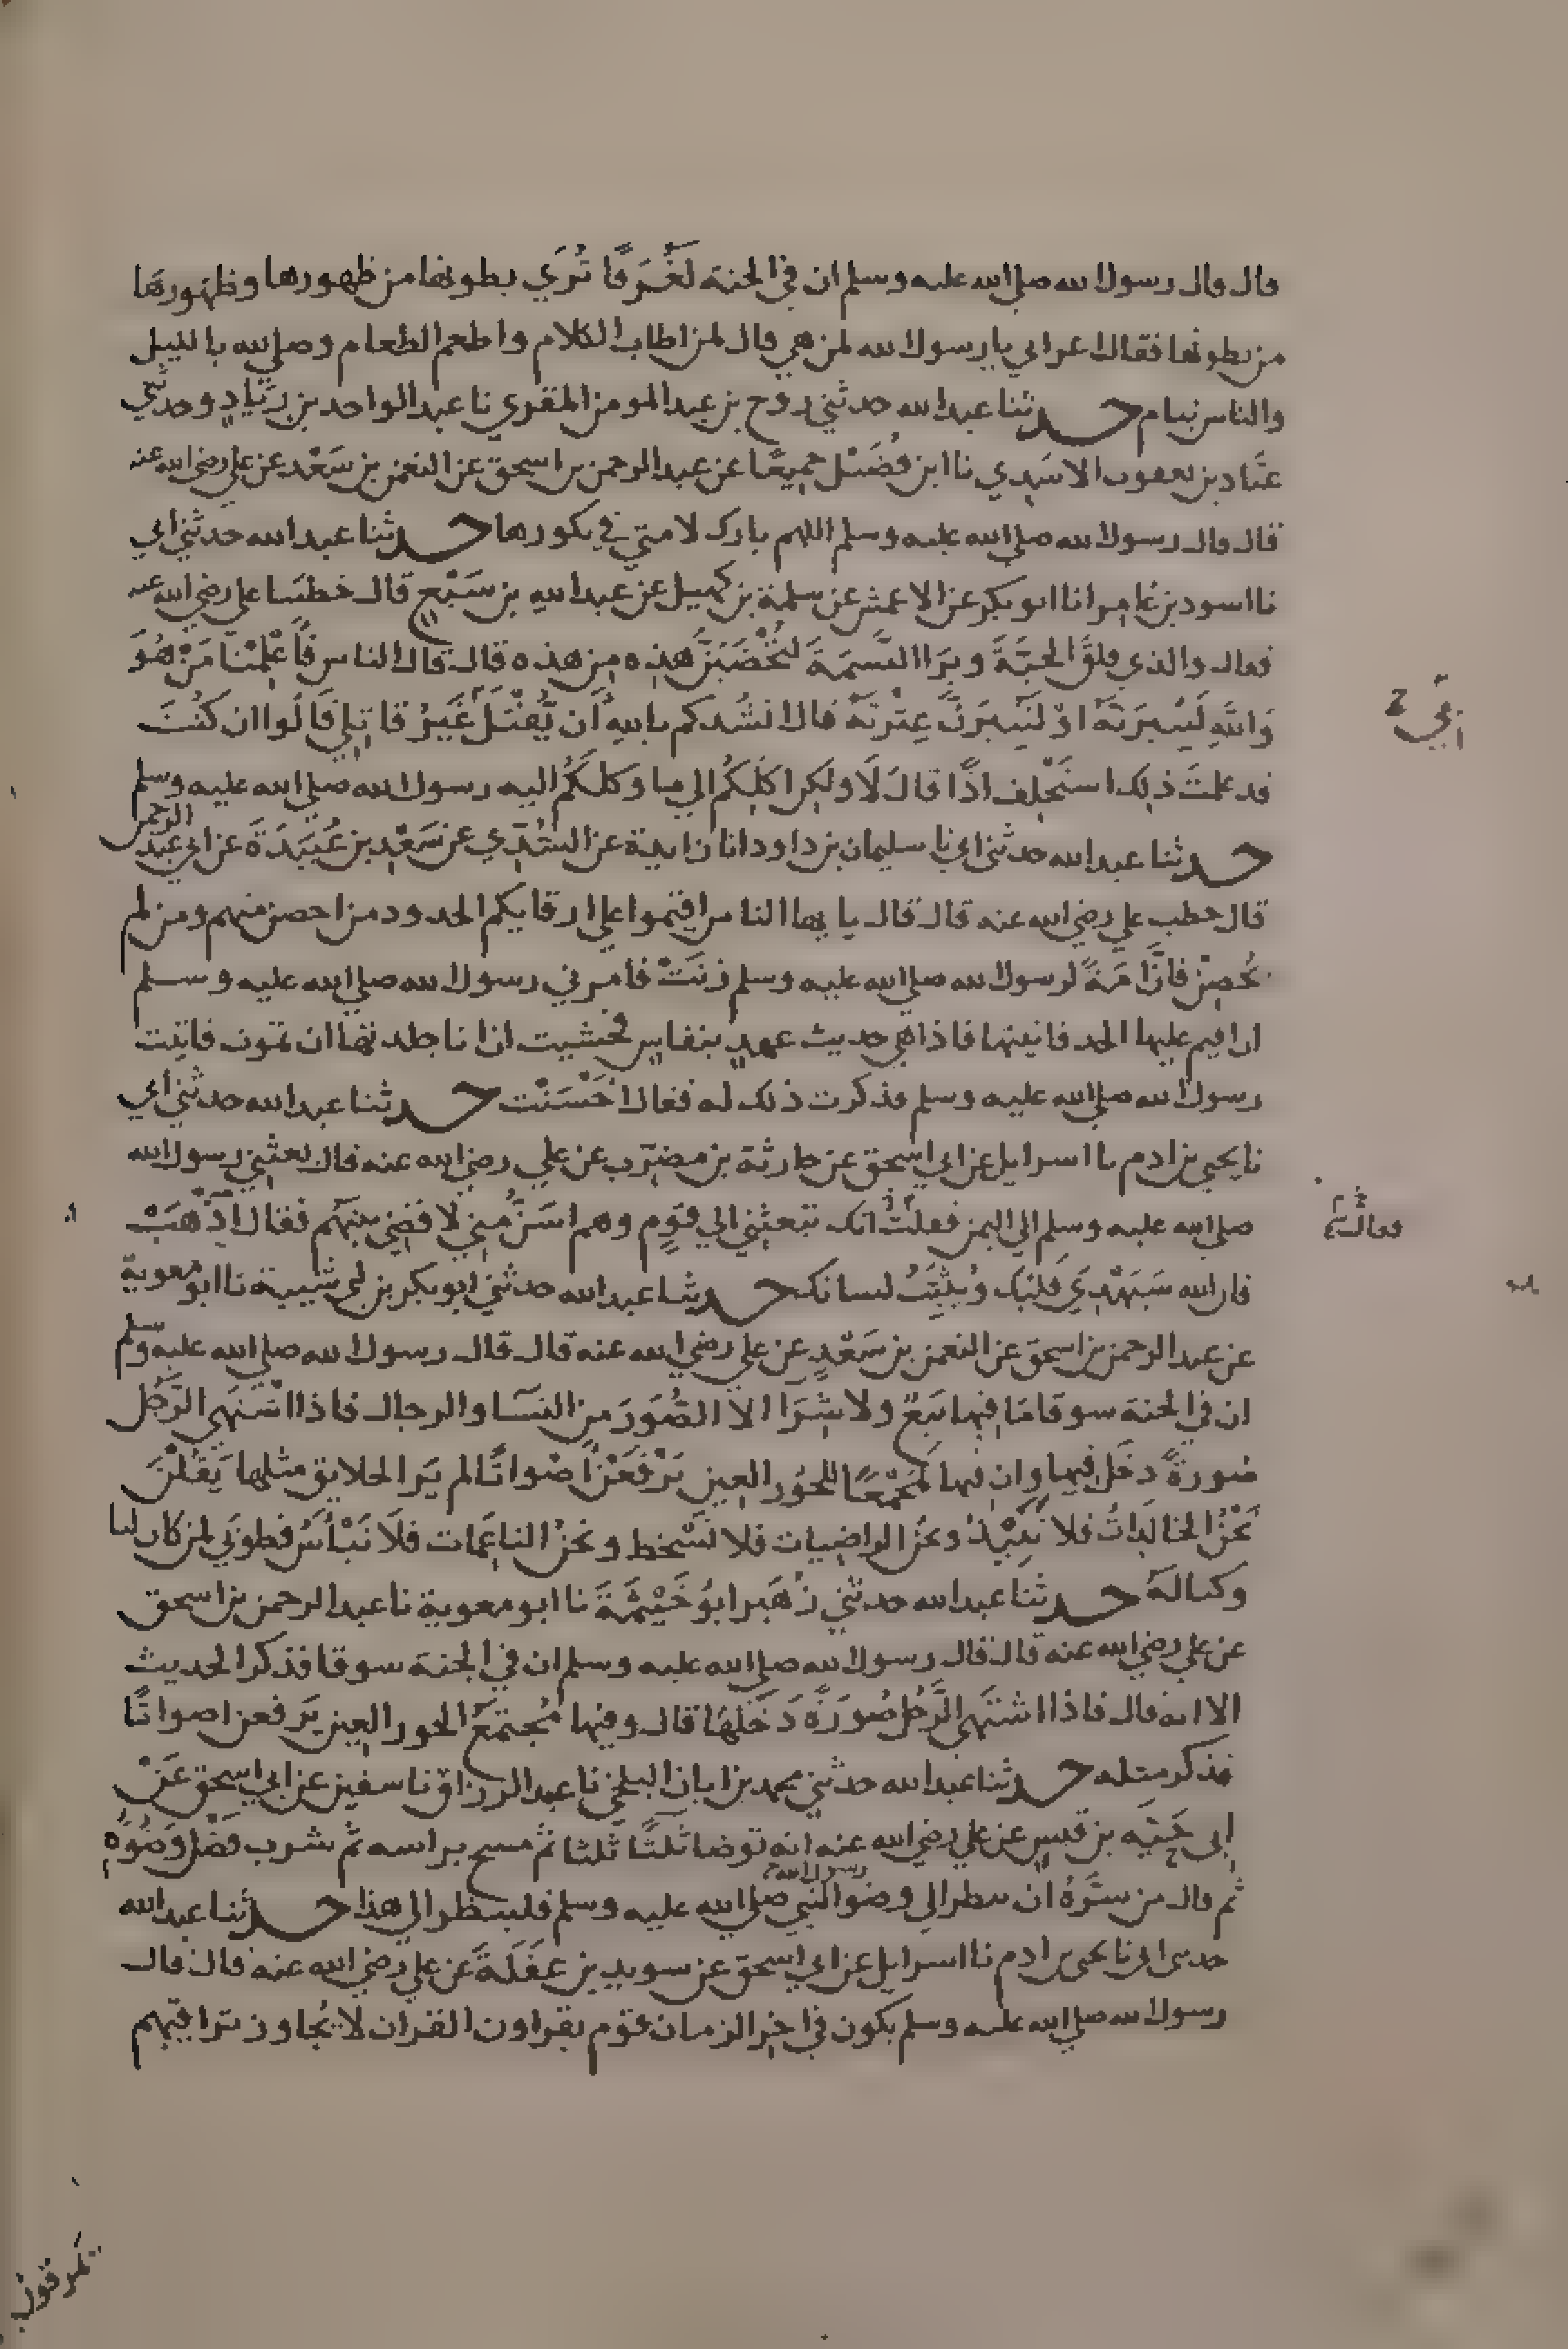 قال قال رسول الله صلى الله عليه وسلم ان في الجنة لَغُرَفًا تُرَي بطونها من ظهورها وظهورها
من بطونها فقال اعرابي يا رسول الله لمن هي قال لمن اطاب الكلام واطعم الطعام وصلى لله بالليل
والناس نيام حدثنا عبد الله حدثني روح بن عبد المومن المقري نا عبد الواحد بن زياد وحدثني
عباد بن يعقوب الاسدي نا ابن فُضَيْل جميعًا عن عبد الرحمن بن اسحق عن النعمن بن سَعْد عن علي رضي الله عنه
قال قال رسول الله صلى الله عليه وسلم اللهم بارك لامتي في بكورها حدثنا عبد الله حدثني أبي
نا اسود بن عامر انا ابو بكر عن الاعمش عن سلمة بن كهيل عن عبد الله بن سَبْع قال خطبنا علي رضي الله عنه
فقال والذي فلقَ الحبَّةَ وبَرَا النَّسَمَةَ لتُخْضَبَنَّ هذه من هذه قال قال الناس فأَعْلِمْنَا مَنْ هُوَ
وَاللهِ لَنُبِيرَنَّهُ اوْ لَنُبِيرَنَّ عِتْرتَهُ قال انشُدكم باللهِ أَن يُقْتَلَ غَيرُ قاتِلِي قَالُوا ان كُنتَ
قد علمتَ ذلك استَخْلِف اذًا قالَ لَا ولكن اكِلُكُمُ الي ما وَكلكُمُ اليه رسول الله صلى الله عليه وسلم
حدثنا عبد الله حدثني ابي نا سليمان بن داود انا زايدة عن السُّدِّي عن سَعْدِ بن عُبَيْدَةَ عن ابي عبد الرحمن
قال خطب علي رضي الله عنه قال قال يا يها الناس اقيموا على ارقايكم الحدود من احصن منهم ومن لم
يُحصِنْ فانَّ امَةً لرسول الله صلى الله عليه وسلم زنَتْ فامرني رسول الله صلى الله عليه وسلم
ان اقيم عليها الحد فاتيتها فاذا هي حديث عهدٍ بنفاسٍ فخشيت ان انا جلدتها ان تموت فاتيت
رسول الله صلى الله عليه وسلم فذكرت ذلك له فقال احْسَنْت حدثنا عبد الله حدثني أبي
نا يحيى بن ادم نا اسرايل عن ابي اسحق عن حارثة بن مضرّب عن علي رضي الله عنه قال بعثني رسول الله
صلى الله عليه وسلم الى اليمن فقلتُ انك تبعثني الي قَوْمٍ وهم اسَنُّ مِني لاقضيَ بينَهُم فقال اذْهَبْ
فان الله سَيَهْدِي قَلبَك وَيُثَبِّتُ لسانك حدثنا عبد الله حدثني ابو بكر بن ابي شيبة نا ابو معوية
عن عبد الرحمن بن اسحق عن النعمن بن سَعْدٍ عن علي رضي الله عنه قال قال رسول الله صلى الله عليه وسلم
ان في الجنة سوقا مَا فيها بَيْعٌ ولا شِرَا الا الصُّوَرَ من النسَا والرجال فاذا اشْتَهَى الرَّجُل
صُورةً دخَلَ فيها وان فيها لمَجْمَعًا للحُور العِين يَرْفَعْنَ اصْواتًا لم يَرَ الخلايق مثلها يَقُلْنَ
نَحْنُ الخَالِدَاتُ فلا نَبِيْدُ ونحنُ الراضيات فلا نَسْخط ونحنُ الناعِمات فلَا نَبْأَسُ فطوبَي لمن كان لنا
وكنا لهُ حدثنا عبد الله حدثني زُهَير ابُو خَيْثمَةَ نا ابو معوية نا عبد الرحمن بن اسحق
عن علي رضي الله عنه قال قال رسول الله صلى الله عليه وسلم ان في الجنة سوقا فذكر الحديث
الا انه قال فاذا اشتَهى الرَّجُل صُورَةً دَخَلهَا قال وفيها مُجتمَعُ الحور العِين يَرفعن اصواتًا
فذكر مثله حدثنا عبد الله حدثني محمد بن ابان البلخي نا عبد الرزاق نا سفين عن ابي اسحق عَنْ
ابي حَيَّة بن قيس عن علي رضي الله عنه انه توضا ثلثًا ثلثا ثُم مسح براسه ثُم شرب فَضْل وَضُوءِهِ
ثم قال من سَرَّهُ ان ينظر الى وضو النبي رسول الله صلى الله عليه وسلم فلينظر الى هذا حدثنا عبد الله
حدثني ابي نا يحيى بن ادم نا اسرايل عن ابي اسحق عن سويد بن غَفَلَةَ عن علي رضي الله عنه قال قال
رسول الله صلى الله عليه وسلم يكون في اخِر الزمان قوْم يقراون القران لا يُجاوز تراقيهم
يمرقون